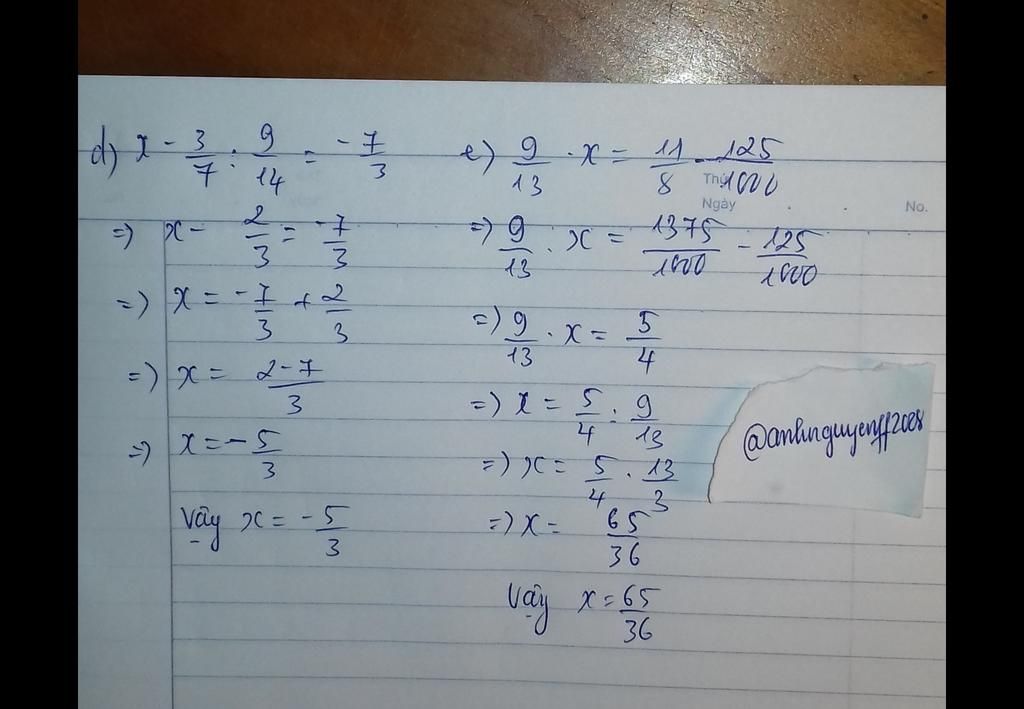 d) x - 3/7 : 9/14 = -7/3
=) x - 2/3 = -7/3
=) x = -7/3 + 2/3
=) x = 2-7/3
=) x = -5/3
Vậy x = -5/3
e) 9/13 . x = 11/8 - 125/1000
=) 9/13 . x = 1375/1000 - 125/1000
=) 9/13 . x = 5/4
=) x = 5/4 : 9/13
=) x = 5/4 . 13/3
=) x = 65/36
Vậy x = 65/36
Thứ
Ngày
No.